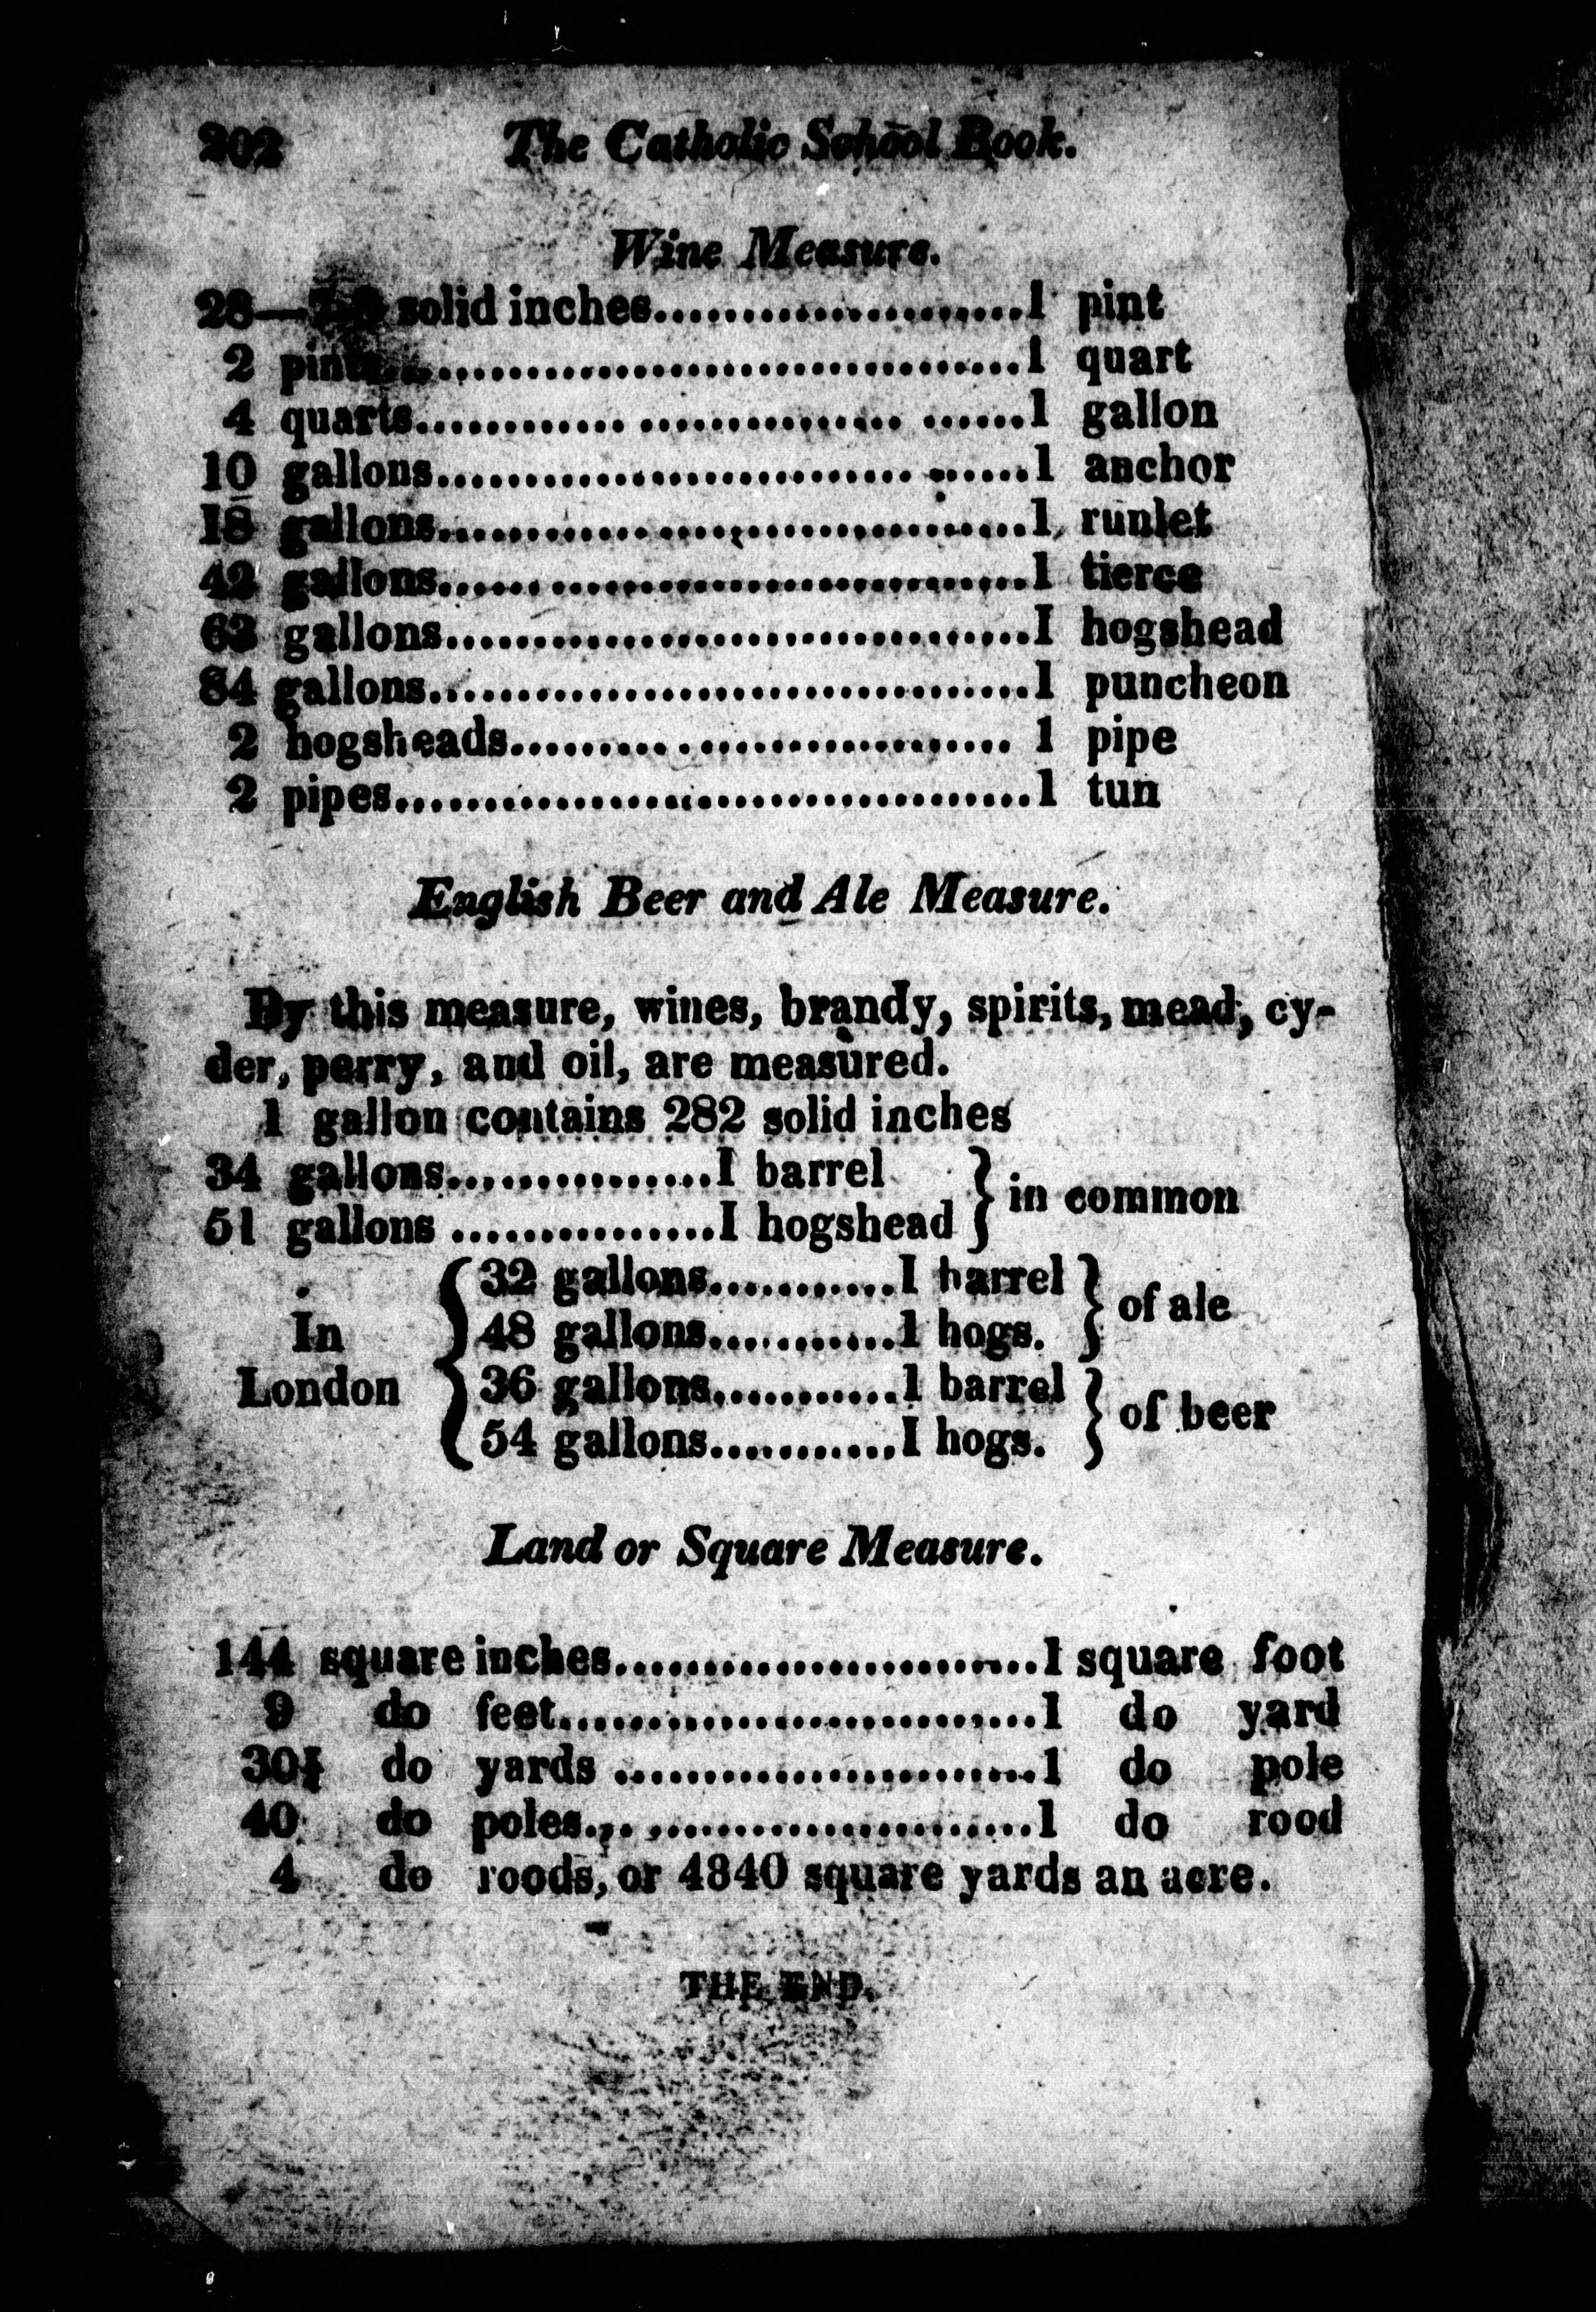 202 The Catholic School Book.
Wine Measure.
28—7-8 solid inches.........................1 pint
2 pints.........................................1 quart
4 quarts............. ............... .......1 gallon
10 gallons................................. .......1 anchor
18 gallons.........................................1 runlet
42 gallons.........................................1 tierce
63 gallons.........................................1 hogshead
84 gallons.........................................1 puncheon
2 hogsheads.................................... 1 pipe
2 pipes............................................1 tun
English Beer and Ale Measure.
By this measure, wines, brandy, spirits, mead, cy-
der, perry, and oil, are measured.
1 gallon contains 282 solid inches
34 gallons..................1 barrel } in common
51 gallons ..................1 hogshead
In London { 32 gallons.............1 barrel } of ale
48 gallons.............1 hogs.
36 gallons.............1 barrel } of beer
54 gallons.............1 hogs.
Land or Square Measure.
144 square inches..............................1 square foot
9 do feet.................................1 do yard
30¼ do yards .............................1 do pole
40 do poles... ...........................1 do rood
4 do roods, or 4840 square yards an acre.
THE END.